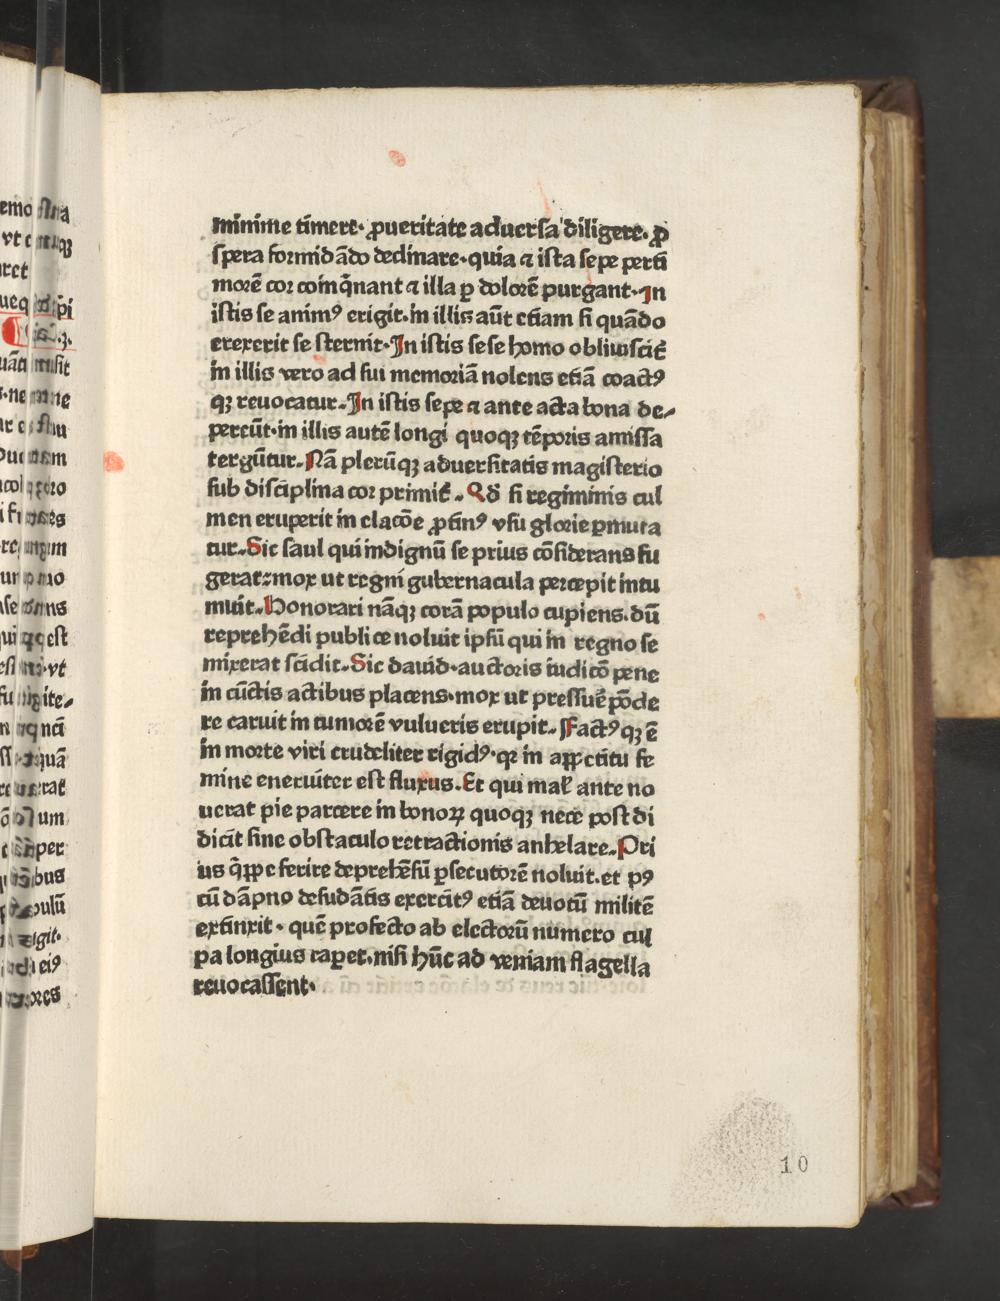 minime timere· ꝓueritate aduersa diligere· ꝓ
spera formidādo declinare·quia ⁊ ista sepe perti
morē cor coinq̄nant ⁊ illa ꝑ dolorē purgant·In
istis se animꝰ erigit·in illis aūt etiam si quādo
erexerit se sternit·In istis sese homo obliuiscit̄
in illis vero ad sui memoriā nolens etiā coactꝰ
qꝫ reuocatur·In istis sepe ⁊ ante acta bona de⸗
pereūt·in illis autē longi quoqꝫ tēporis amissa
tergūtur·Nā plerūqꝫ aduersitatis magisterio
sub disciplina cor primit̄·Qd̄ si regiminis cul
men eruperit in elacōe ꝓtinꝰ vsu glorie ꝑmuta
tur·Sic saul qui indignū se prius cōsiderans fu
gerat:mox ut regni gubernacula percepit intu
muit·Honorari nāqꝫ corā populo cupiens·dū
reprehēdi publice noluit ipsū qui in regno se
mixerat scidit·Sic dauid·auctoris iudicō pene
in cūctis actibus placens·mox ut pressuē pōde
re caruit in tumorē vulueris erupit·Factꝰqꝫ ē
in morte viri crudeliter rigidꝰ·qr in aꝑꝑetitu fe
mine eneruiter est fluxus·Et qui mal̄ ante no
uerat pie parcere in bonoꝝ quoqꝫ nece post di
dicit sine obstaculo retractionis anhelare·Pri
us q̄ꝑꝑe ferire deprehēsū ꝑsecutorē noluit·et pꝰ
cū dāpno desudātis exercitꝰ etiā deuotū militē
extinxit· quē profecto ab electorū numero cul
pa longius raꝑet·nisi hūc ad veniam flagella
reuocassent·
10